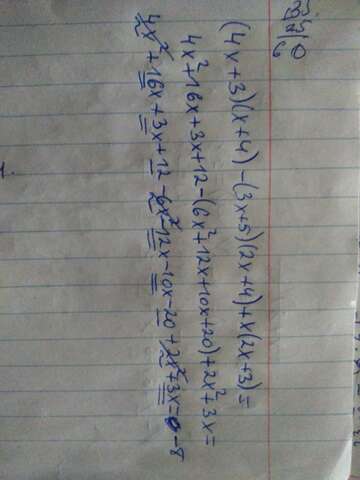 (4x+3)(x+4)-(3x+5)(2x+4)+x(2x+3)=
4x²+16x+3x+12-(6x²+12x+10x+20)+2x²+3x=
4x²+16x+3x+12-6x²-12x-10x-20+2x²+3x=-8